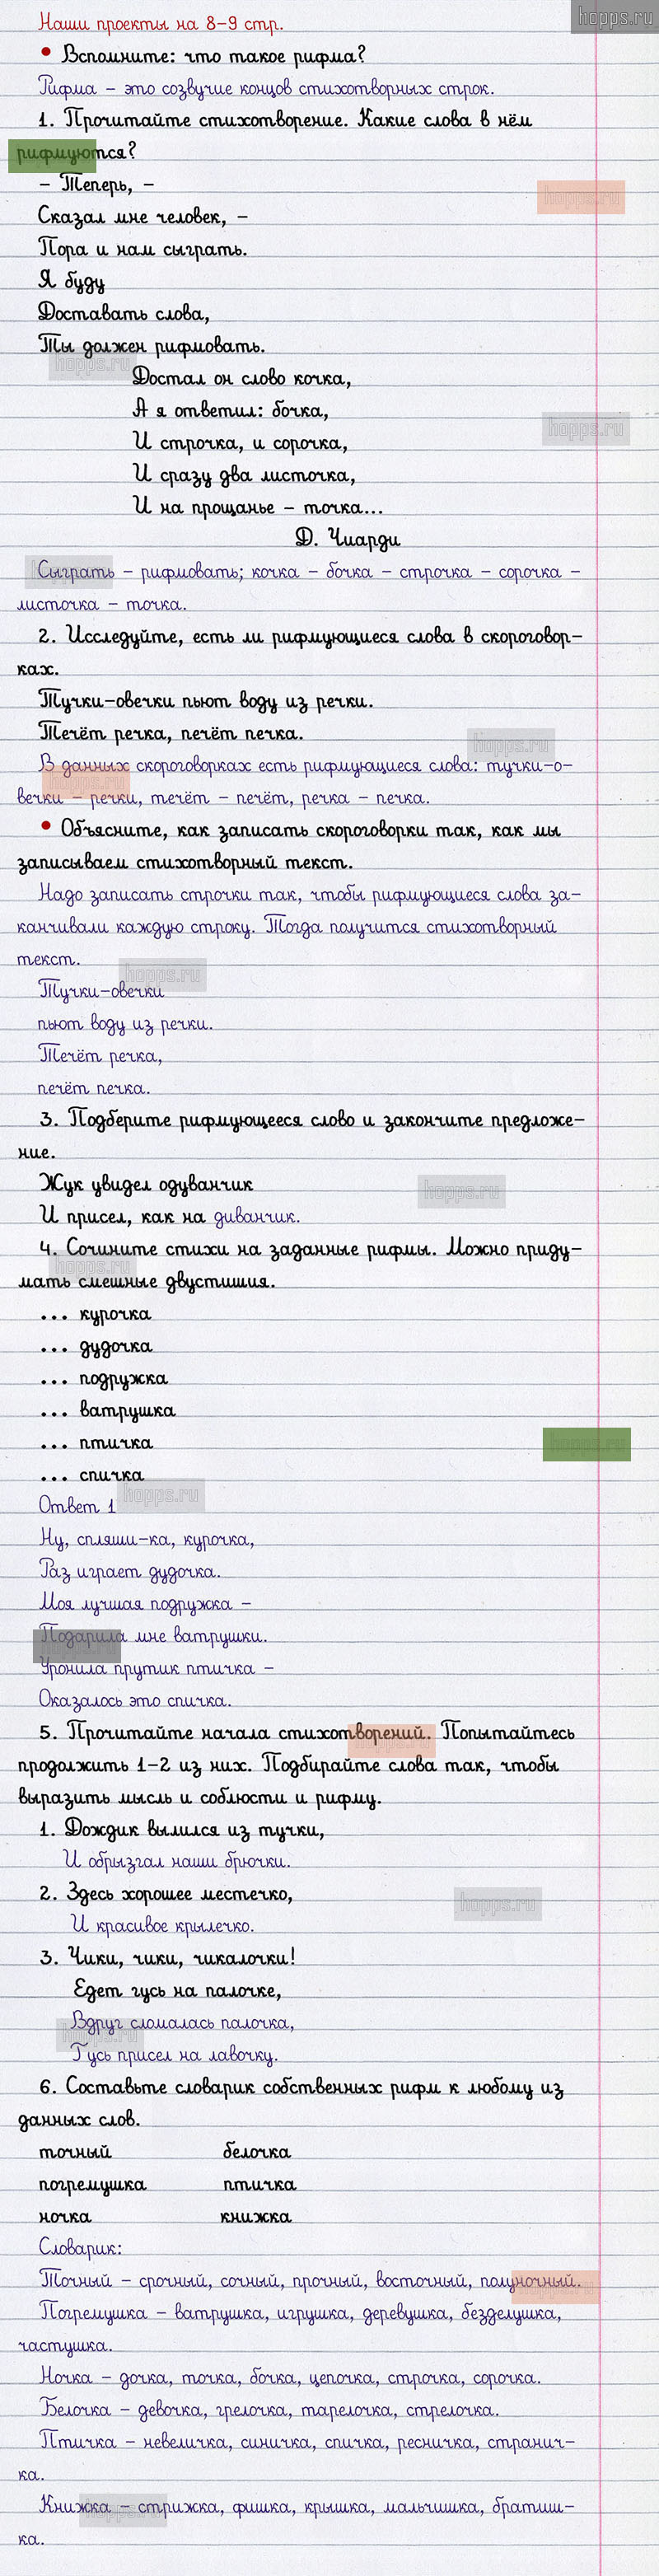 Наши проекты на 8-9 стр.
hopps.ru
• Вспомните: что такое рифма?
Рифма - это созвучие концов стихотворных строк.
1. Прочитайте стихотворение. Какие слова в нём
рифмуются?
- Теперь, -
hopps.ru
Сказал мне человек, -
Пора и нам сыграть.
Я буду
Доставать слова,
Ты должен рифмовать.
hopps.ru
Достал он слово кочка,
А я ответил: бочка,
hopps.ru
И строчка, и сорочка,
И сразу два листочка,
И на прощанье - точка...
Д. Чиарди
Сыграть - рифмовать; кочка - бочка - строчка - сорочка -
листочка - точка.
2. Исследуйте, есть ли рифмующиеся слова в скороговор-
ках.
Тучки-овечки пьют воду из речки.
Течёт речка, печёт печка.
hopps.ru
В данных скороговорках есть рифмующиеся слова: тучки-о-
вечки - речки, течёт - печёт, речка - печка.
• Объясните, как записать скороговорки так, как мы
записываем стихотворный текст.
Надо записать строчки так, чтобы рифмующиеся слова за-
канчивали каждую строку. Тогда получится стихотворный
текст.
hopps.ru
Тучки-овечки
пьют воду из речки.
Течёт речка,
печёт печка.
3. Подберите рифмующееся слово и закончите предложе-
ние.
Жук увидел одуванчик
hopps.ru
И присел, как на диванчик.
4. Сочините стихи на заданные рифмы. Можно приду-
hopps.ru
мать смешные двустишия.
... курочка
... дудочка
... подружка
... ватрушка
... птичка
hopps.ru
... спичка
hopps.ru
Ответ 1
Ну, спляши-ка, курочка,
Раз играет дудочка.
Моя лучшая подружка -
Подарила мне ватрушки.
Уронила прутик птичка -
Оказалось это спичка.
5. Прочитайте начала стихотворений. Попытайтесь
продолжить 1-2 из них. Подбирайте слова так, чтобы
выразить мысль и соблюсти и рифму.
1. Дождик вылился из тучки,
И обрызгал наши брючки.
2. Здесь хорошее местечко,
hopps.ru
И красивое крылечко.
3. Чики, чики, чикалочки!
Едет гусь на палочке,
Вдруг сломалась палочка,
hopps.ru
Гусь присел на лавочку.
6. Составьте словарик собственных рифм к любому из
данных слов.
точный белочка
погремушка птичка
ночка книжка
Словарик:
Точный - срочный, сочный, прочный, восточный, полуночный.
Погремушка - ватрушка, игрушка, деревушка, безделушка,
частушка.
Ночка - дочка, точка, бочка, цепочка, строчка, сорочка.
Белочка - девочка, грелочка, тарелочка, стрелочка.
Птичка - невеличка, синичка, спичка, ресничка, странич-
ка.
Книжка - стрижка, фишка, крышка, мальчишка, братиш-
hopps.ru
ка.